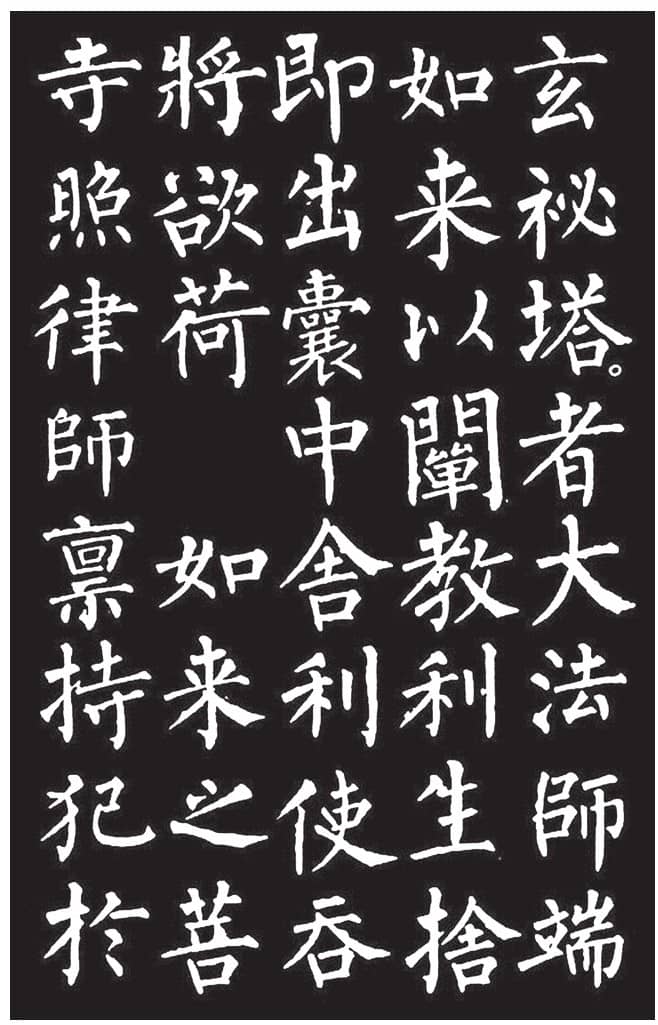 玄祕塔。者大法師端
如来以闡教利生捨
即出囊中舍利使吞
將欲荷 如来之菩
寺照律師禀持犯於